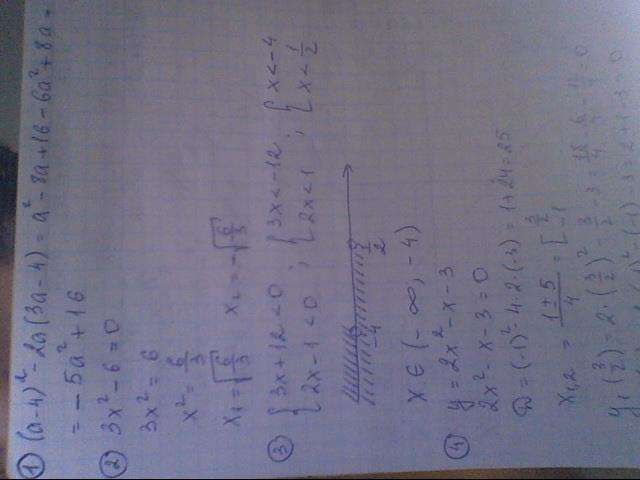 ① (a-4)² - 2a(3a-4) = a² - 8a + 16 - 6a² + 8a =
= -5a² + 16
② 3x² - 6 = 0
3x² = 6
x² = 6/3
x₁ = √(6/3) x₂ = -√(6/3)
③ { 3x+12<0 2x-1<0 ; { 3x<-12 2x<1 ; { x<-4 x<1/2
-4 1/2
x ∈ (-∞, -4)
④ y = 2x² - x - 3
2x² - x - 3 = 0
D = (-1)² - 4·2·(-3) = 1+24 = 25
x₁,₂ = (1±5)/4 = [ 3/2 -1
y₁(3/2) = 2·(3/2)² - 3/2 - 3 =